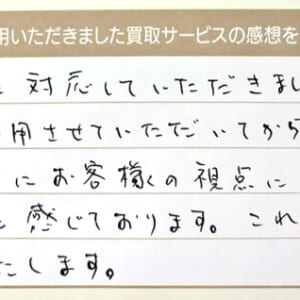 用いただきました買取サービスの感想を
対応していただきまし
用させていただいてから
にお客様の視点に
と感じております。これ
たします。